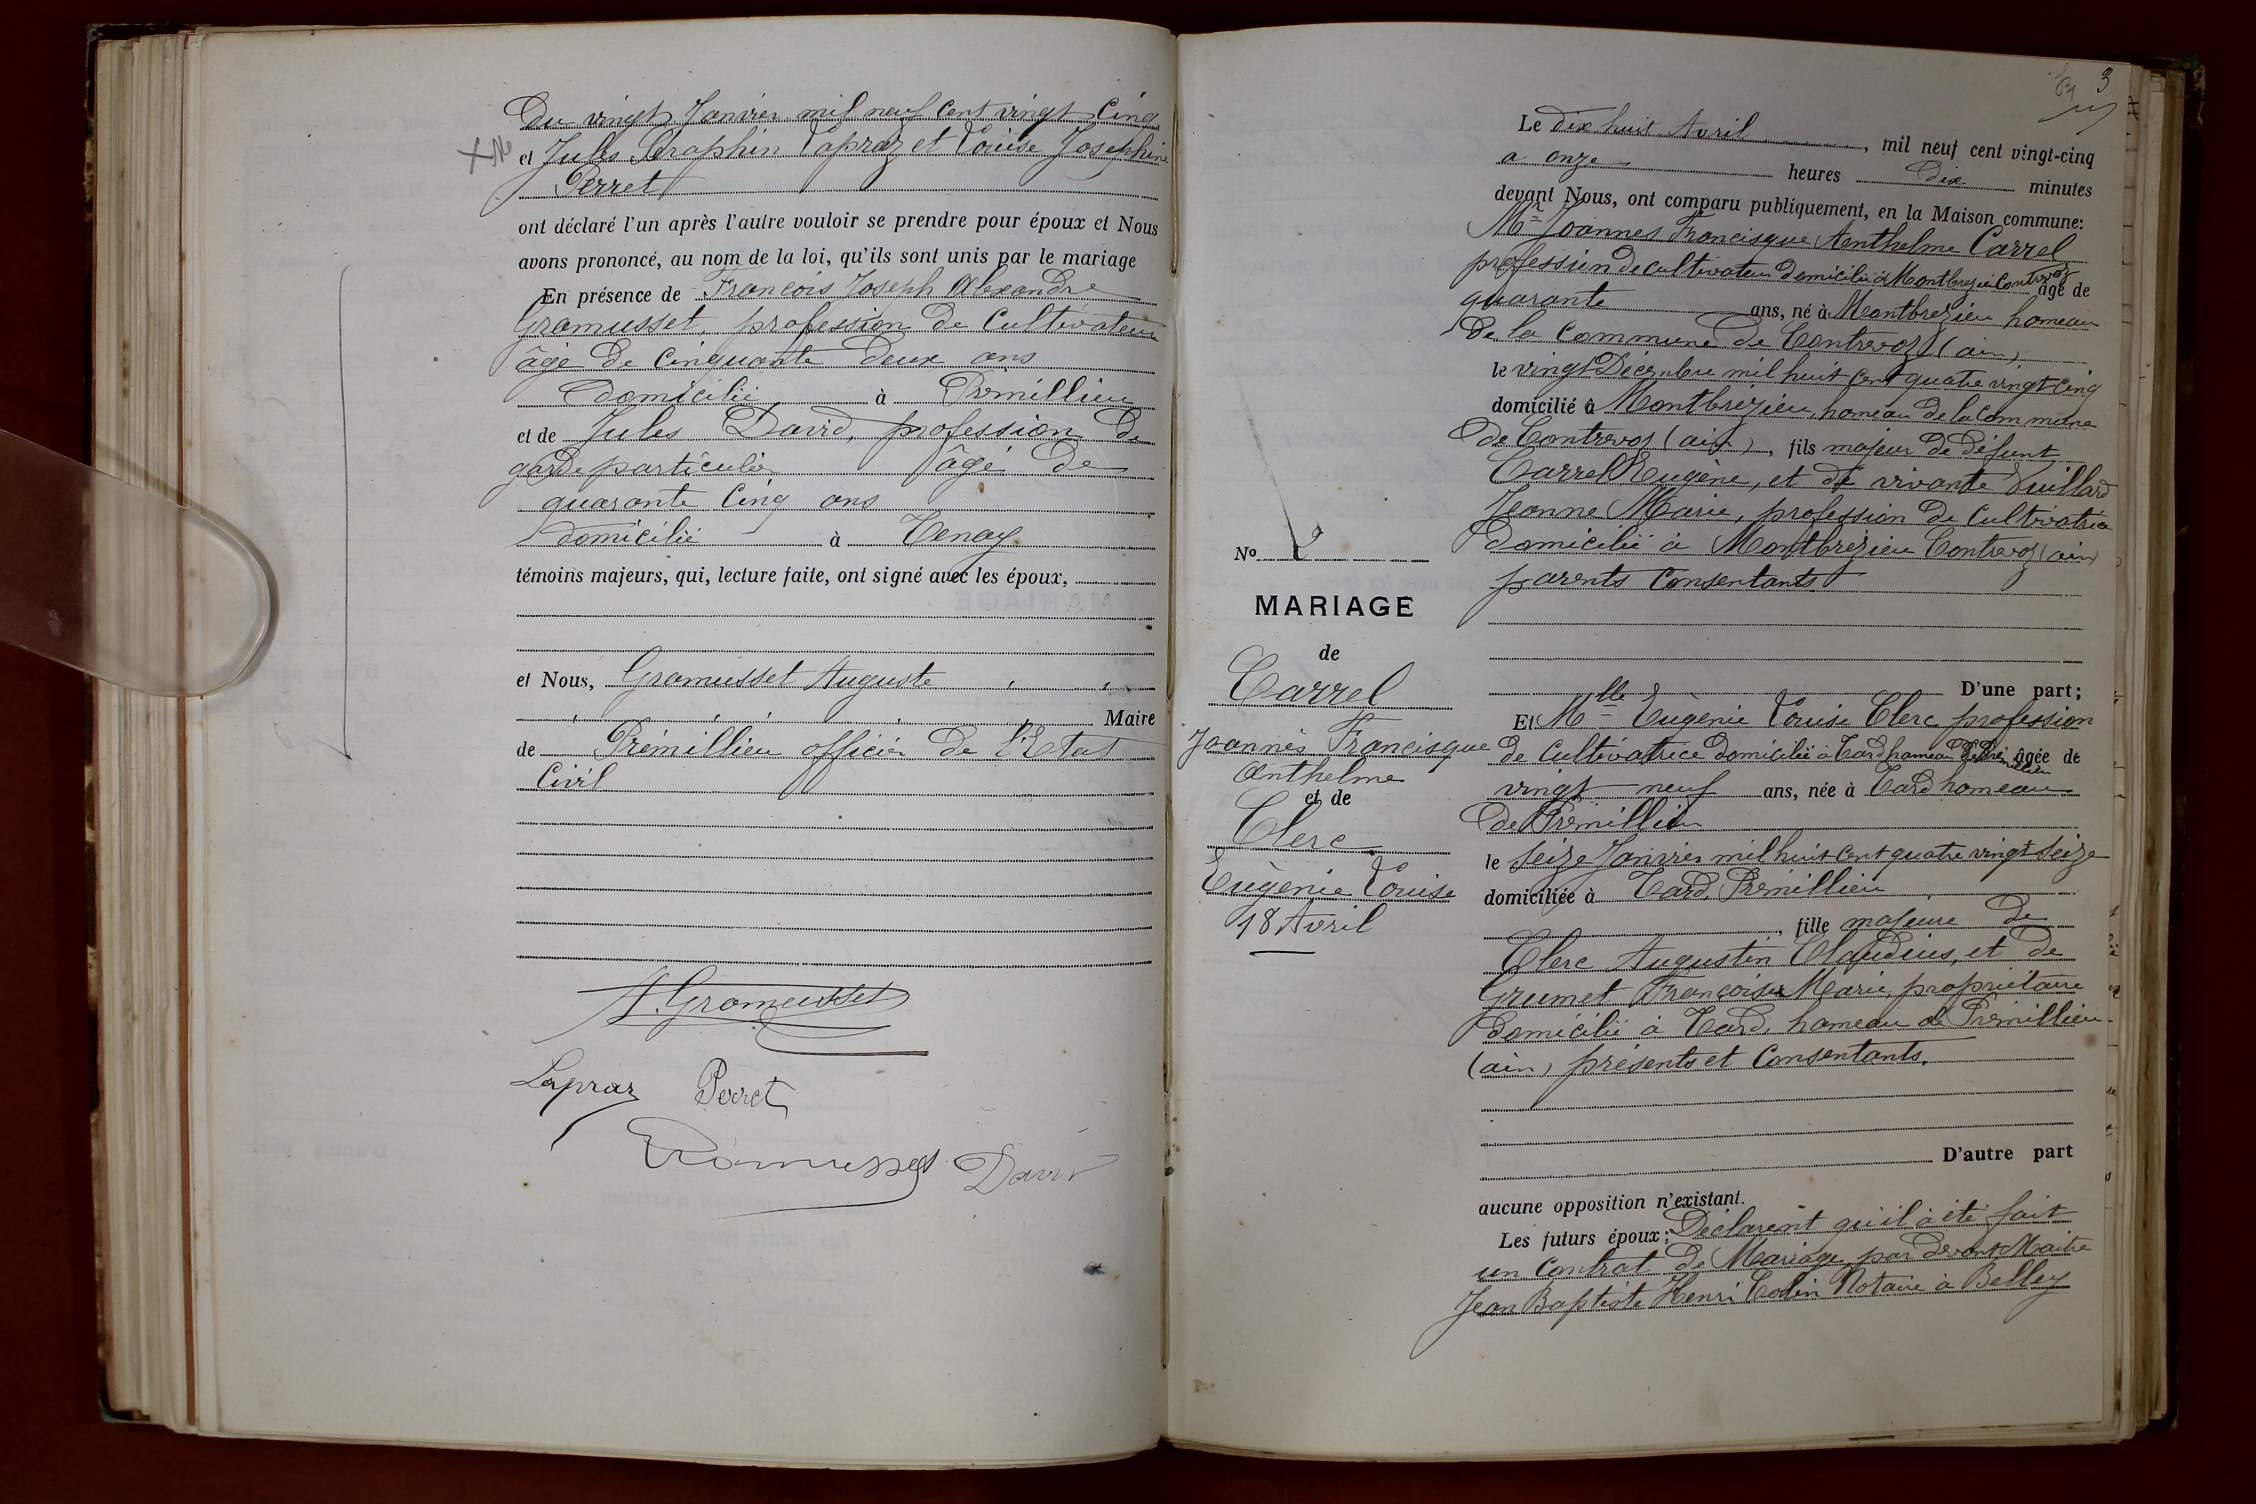 du vingt Janvier mil neuf cent vingt cinq
et Jules Séraphin Lapraz et Louise Joséphine
Perret
ont déclaré l'un après l'autre vouloir se prendre pour époux et Nous
avons prononcé, au nom de la loi, qu'ils sont unis par le mariage
En présence de François Joseph Alexandre
Gromusset, profession de Cultivateur
âgé de cinquante deux ans
domicilié à Prémillieu
et de Jules David, profession de
garde particulier âgé de
quarante cinq ans
domicilié à Tenay
témoins majeurs, qui, lecture faite, ont signé avec les époux,
et Nous, Gromusset Auguste
Maire
de Prémillieu officier de l'Etat
Civil
A. Gromusset
Lapraz Perret
Gromusset David
3
Le dix huit Avril, mil neuf cent vingt-cinq
a onze heures dix minutes
devant Nous, ont comparu publiquement, en la Maison commune:
Mr Joannès Francisque Anthelme Carrel
profession de cultivateur domicilié à Montbrezieu Contrevoz âgé de
quarante ans, né à Montbrezieu hameau
de la Commune de Contrevoz (ain)
le vingt Décembre mil huit cent quatre vingt cinq
domicilié à Montbrézieu, hameau de la commune
de Contrevoz (ain), fils majeur de défunt
Carrel Eugène, et de vivante Vuillard
Jeanne Marie, profession de Cultivatrice
domicilié à Montbrézieu Contrevoz (ain)
parents Consentants
D'une part;
No 2
MARIAGE
de
Carrel
Joannès Francisque
Anthelme
et de
Clerc
Eugénie Louise
18 Avril
Et Mlle Eugénie Louise Clerc profession
de Cultivatrice domicilié à Tard hameau de Prémillieu âgée de
vingt neuf ans, née à Tard hameau
de Prémillieu
le seize Janvier mil huit cent quatre vingt seize
domiciliée à Tard, Prémillieu
, fille majeure de
Clerc Augustin Claudius, et de
Grumet Françoise Marie, propriétaire
domicilié à Tard, hameau de Prémillieu
(ain) présents et Consentants.
D'autre part
aucune opposition n'existant.
Les futurs époux; Déclarent qu'il à été fait
un Contrat de Mariage par devant Maitre
Jean Baptiste Henri Notaire à Belley